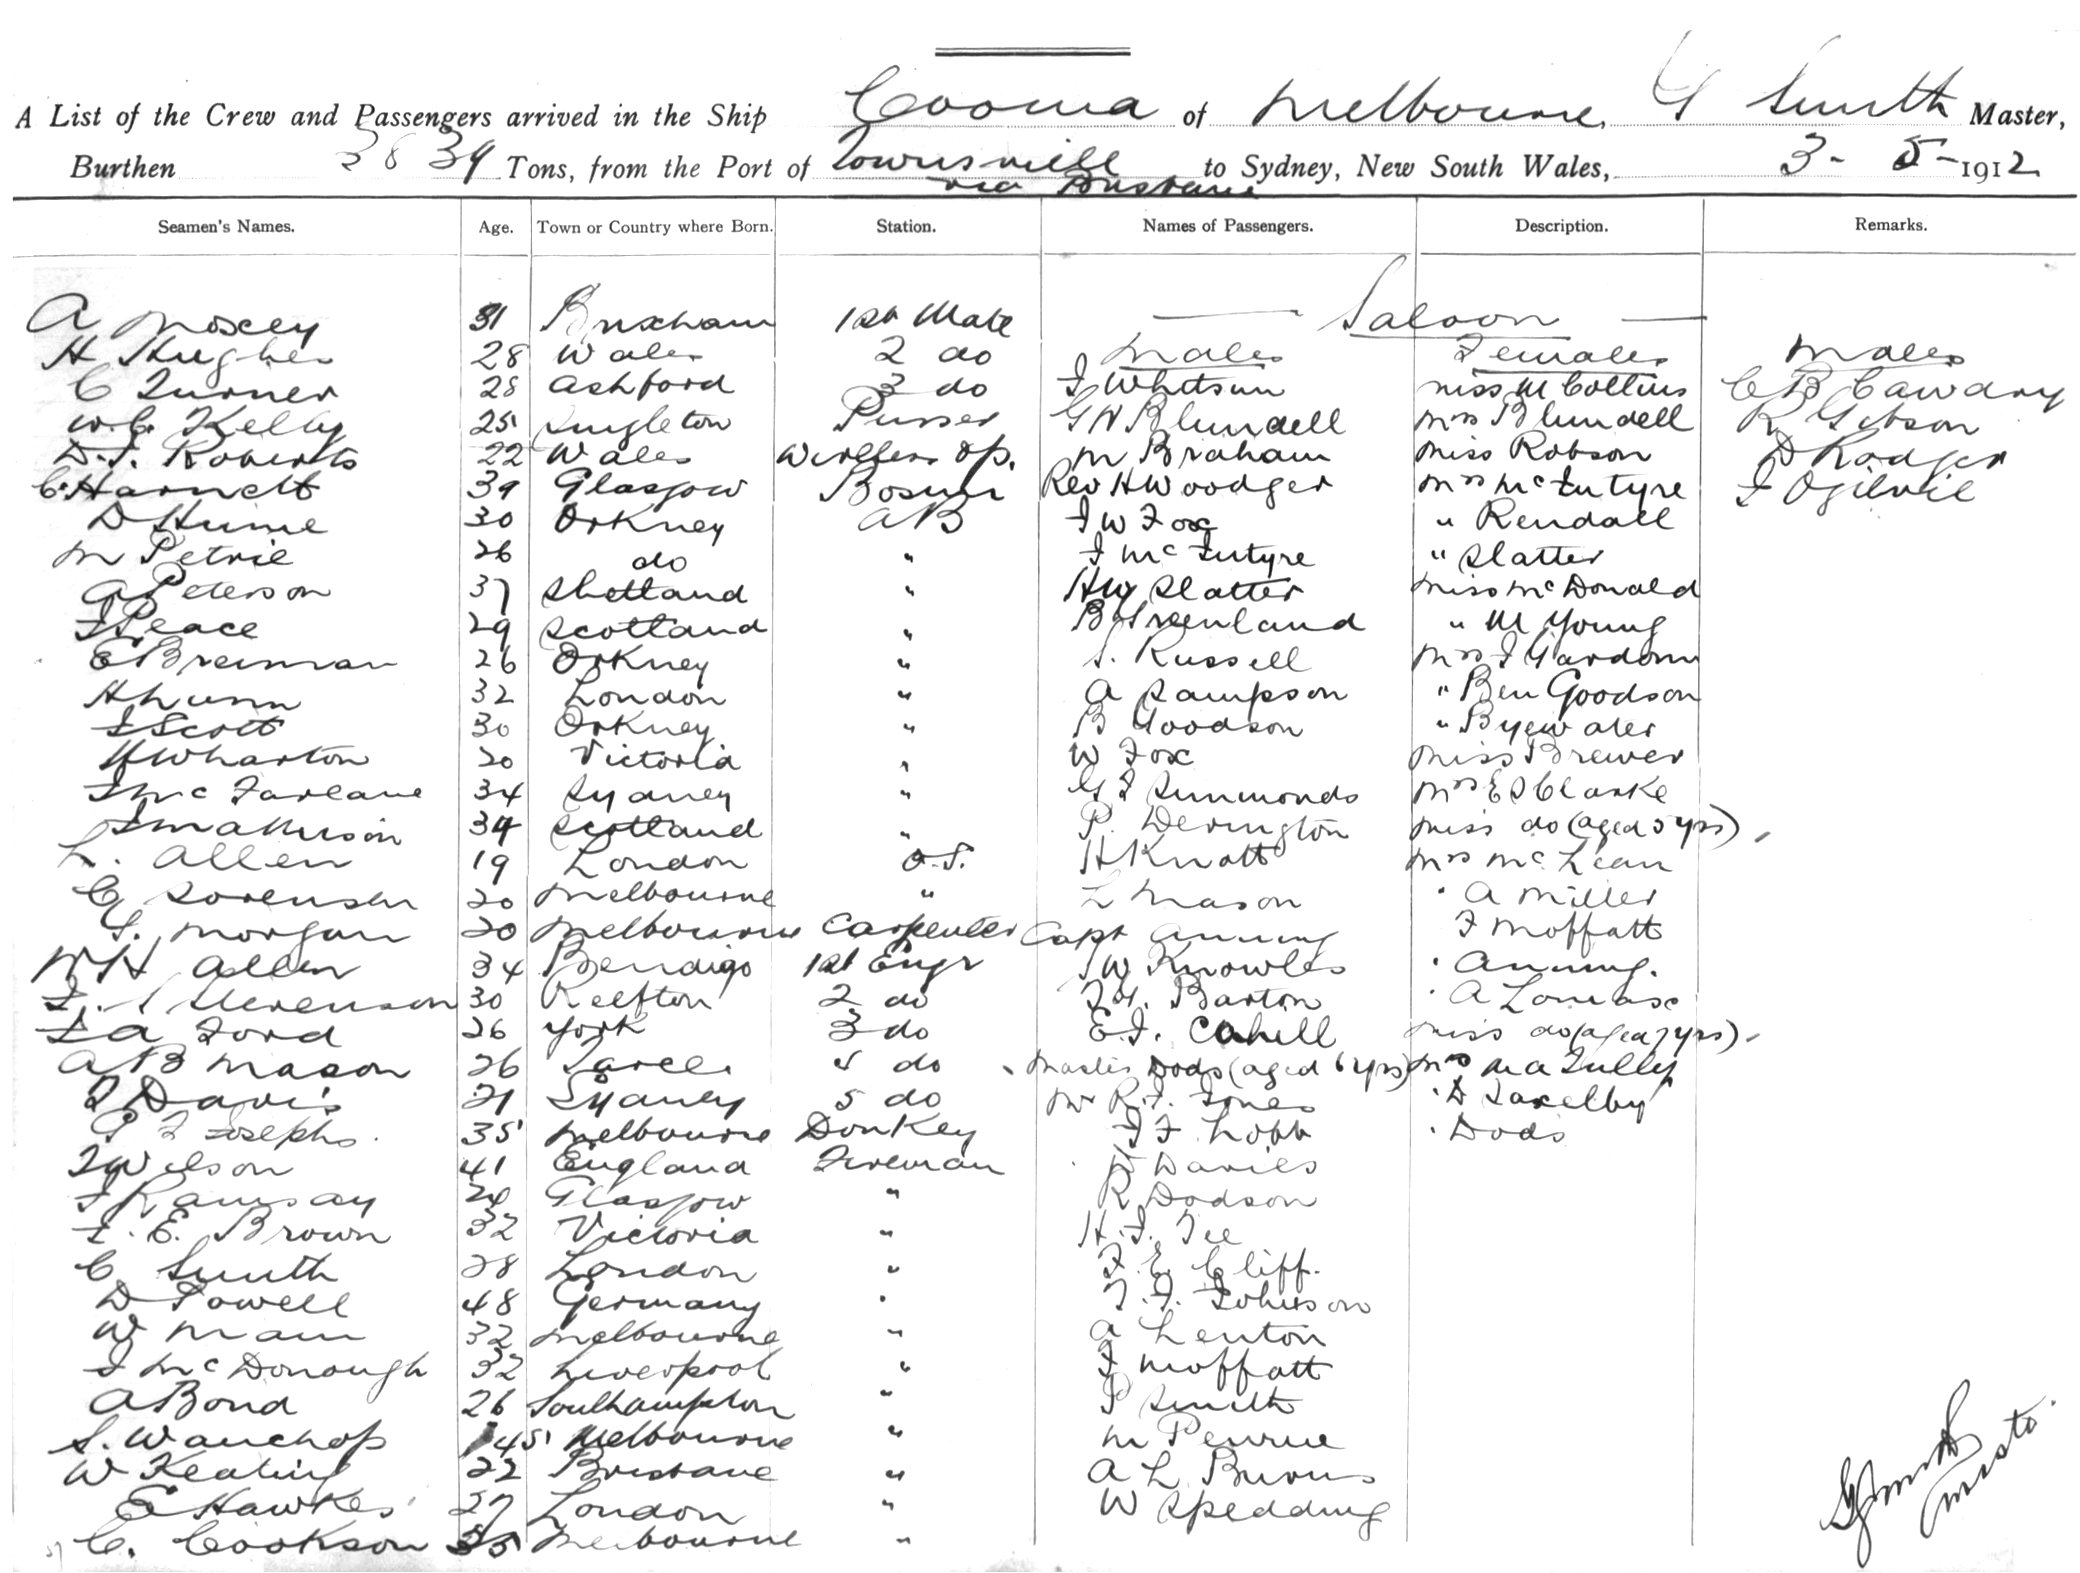 A List of the Crew and Passengers arrived in the Ship Cooma of Melbourne, G Smith Master,
Burthen 3839 Tons, from the Port of Townsville via Brisbane to Sydney, New South Wales, 3-5-1912
Seamen's Names. Age. Town or Country where Born. Station. Names of Passengers. Description. Remarks.
A Moxey 31 Brixham 1st Mate — Saloon —
H Hughes 28 Wales 2 do Males Females Males
C Turner 28 Ashford 3 do J Whitson Miss M Collins C B Cawdry
W.C. Kelly 25 Singleton Purser G N Blundell Mrs Blundell R Gibson
D.J. Roberts 22 Wales Wireless Op. M Braham Miss Robson D Rodger
C. Harnett 39 Glasgow Bosun Rev H Woodger Mrs McIntyre J Ogilvie
D Hume 30 Orkney AB J W Fox " Rendall
M Petrie 26 do " J McIntyre " Slatter
A Peterson 37 Shetland " HW Slatter Miss McDonald
J Peace 29 Scotland " B Greenland " M Young
E Breman 26 Orkney " S. Russell Mrs J
H Lunn 32 London " A Sampson " Ben Goodson
J Scott 30 Orkney " B Goodson " Byewater
H Wharton 20 Victoria " W Fox Miss Brewer
J McFarlane 34 Sydney " G J Simmonds Mrs E S Clarke
J Mathieson 34 Scotland " P. Derington Miss do (aged 5 yrs)
L. Allen 19 London O.S. H Knott Mrs McLean
C Sorensen 20 Melbourne " L Mason " A Miller
G. Morgan 20 Melbourne Carpenter Capt Anning F Moffatt
W H Allen 34 Bendigo 1st Engr J W Knowles " Anning.
Stevenson 30 Reefton 2 do Barton " A Lomax
J A Ford 26 York 3 do E.J. Cahill Miss do (aged 7 yrs)
A B Mason 26 4 do Master Dods (aged 6 yrs) Mrs Tully
J Davis 21 Sydney 5 do Mr R.J. Jones " D Saxelby
P J Josephs. 35 Melbourne Donkey J F Lobb " Dods
J Wilson 41 England Fireman R Davies
J Ramsay 24 Glasgow " R Dodson
J. E. Brown 32 Victoria " H.J. Tee
C Smith 28 London " F. E. Cliff.
D Powell 48 Germany " T.J. Johnson
W Main 32 Melbourne " A Lenton
J McDonough 32 Liverpool " F Moffatt
A Bond 26 Southampton " P Smith
S. Wauchop 45 Melbourne " M Penrue
W Keating 22 Brisbane " A L Burns
E Hawkes 27 London " W Spedding
C. Cookson 35 Melbourne "
G Smith
Master